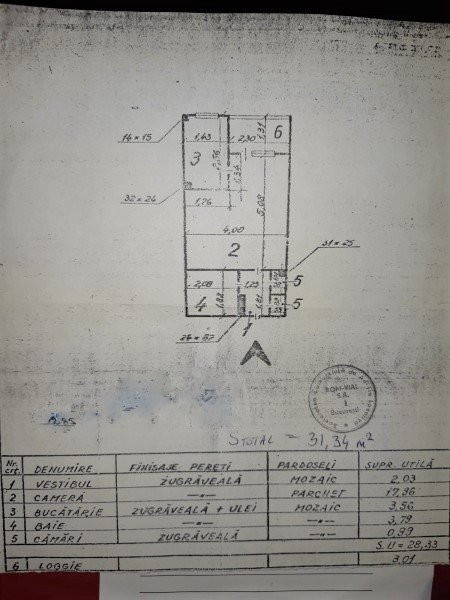 14×15
1,43
2,30
1,31
6
3
1,34
32×24
1,76
5,08
4,00
2
31×25
2,08
1,23
5
4
1,82
1,81
5
1
ROM-VIAL
S.A.
1
Bucuresti
STOTAL = 31,34 m²
Nr. crt. DENUMIRE FINISAJE PERETI PARDOSELI SUPR. UTILĂ
1 VESTIBUL ZUGRĂVEALĂ MOZAIC 2,03
2 CAMERA —"— PARCHET 17,96
3 BUCĂTĂRIE ZUGRĂVEALĂ + ULEI MOZAIC 3,56
4 BAIE —"— —"— 3,79
5 CĂMĂRI ZUGRĂVEALĂ —"— 0,99
S.U = 28,33
6 LOGGIE 3,01